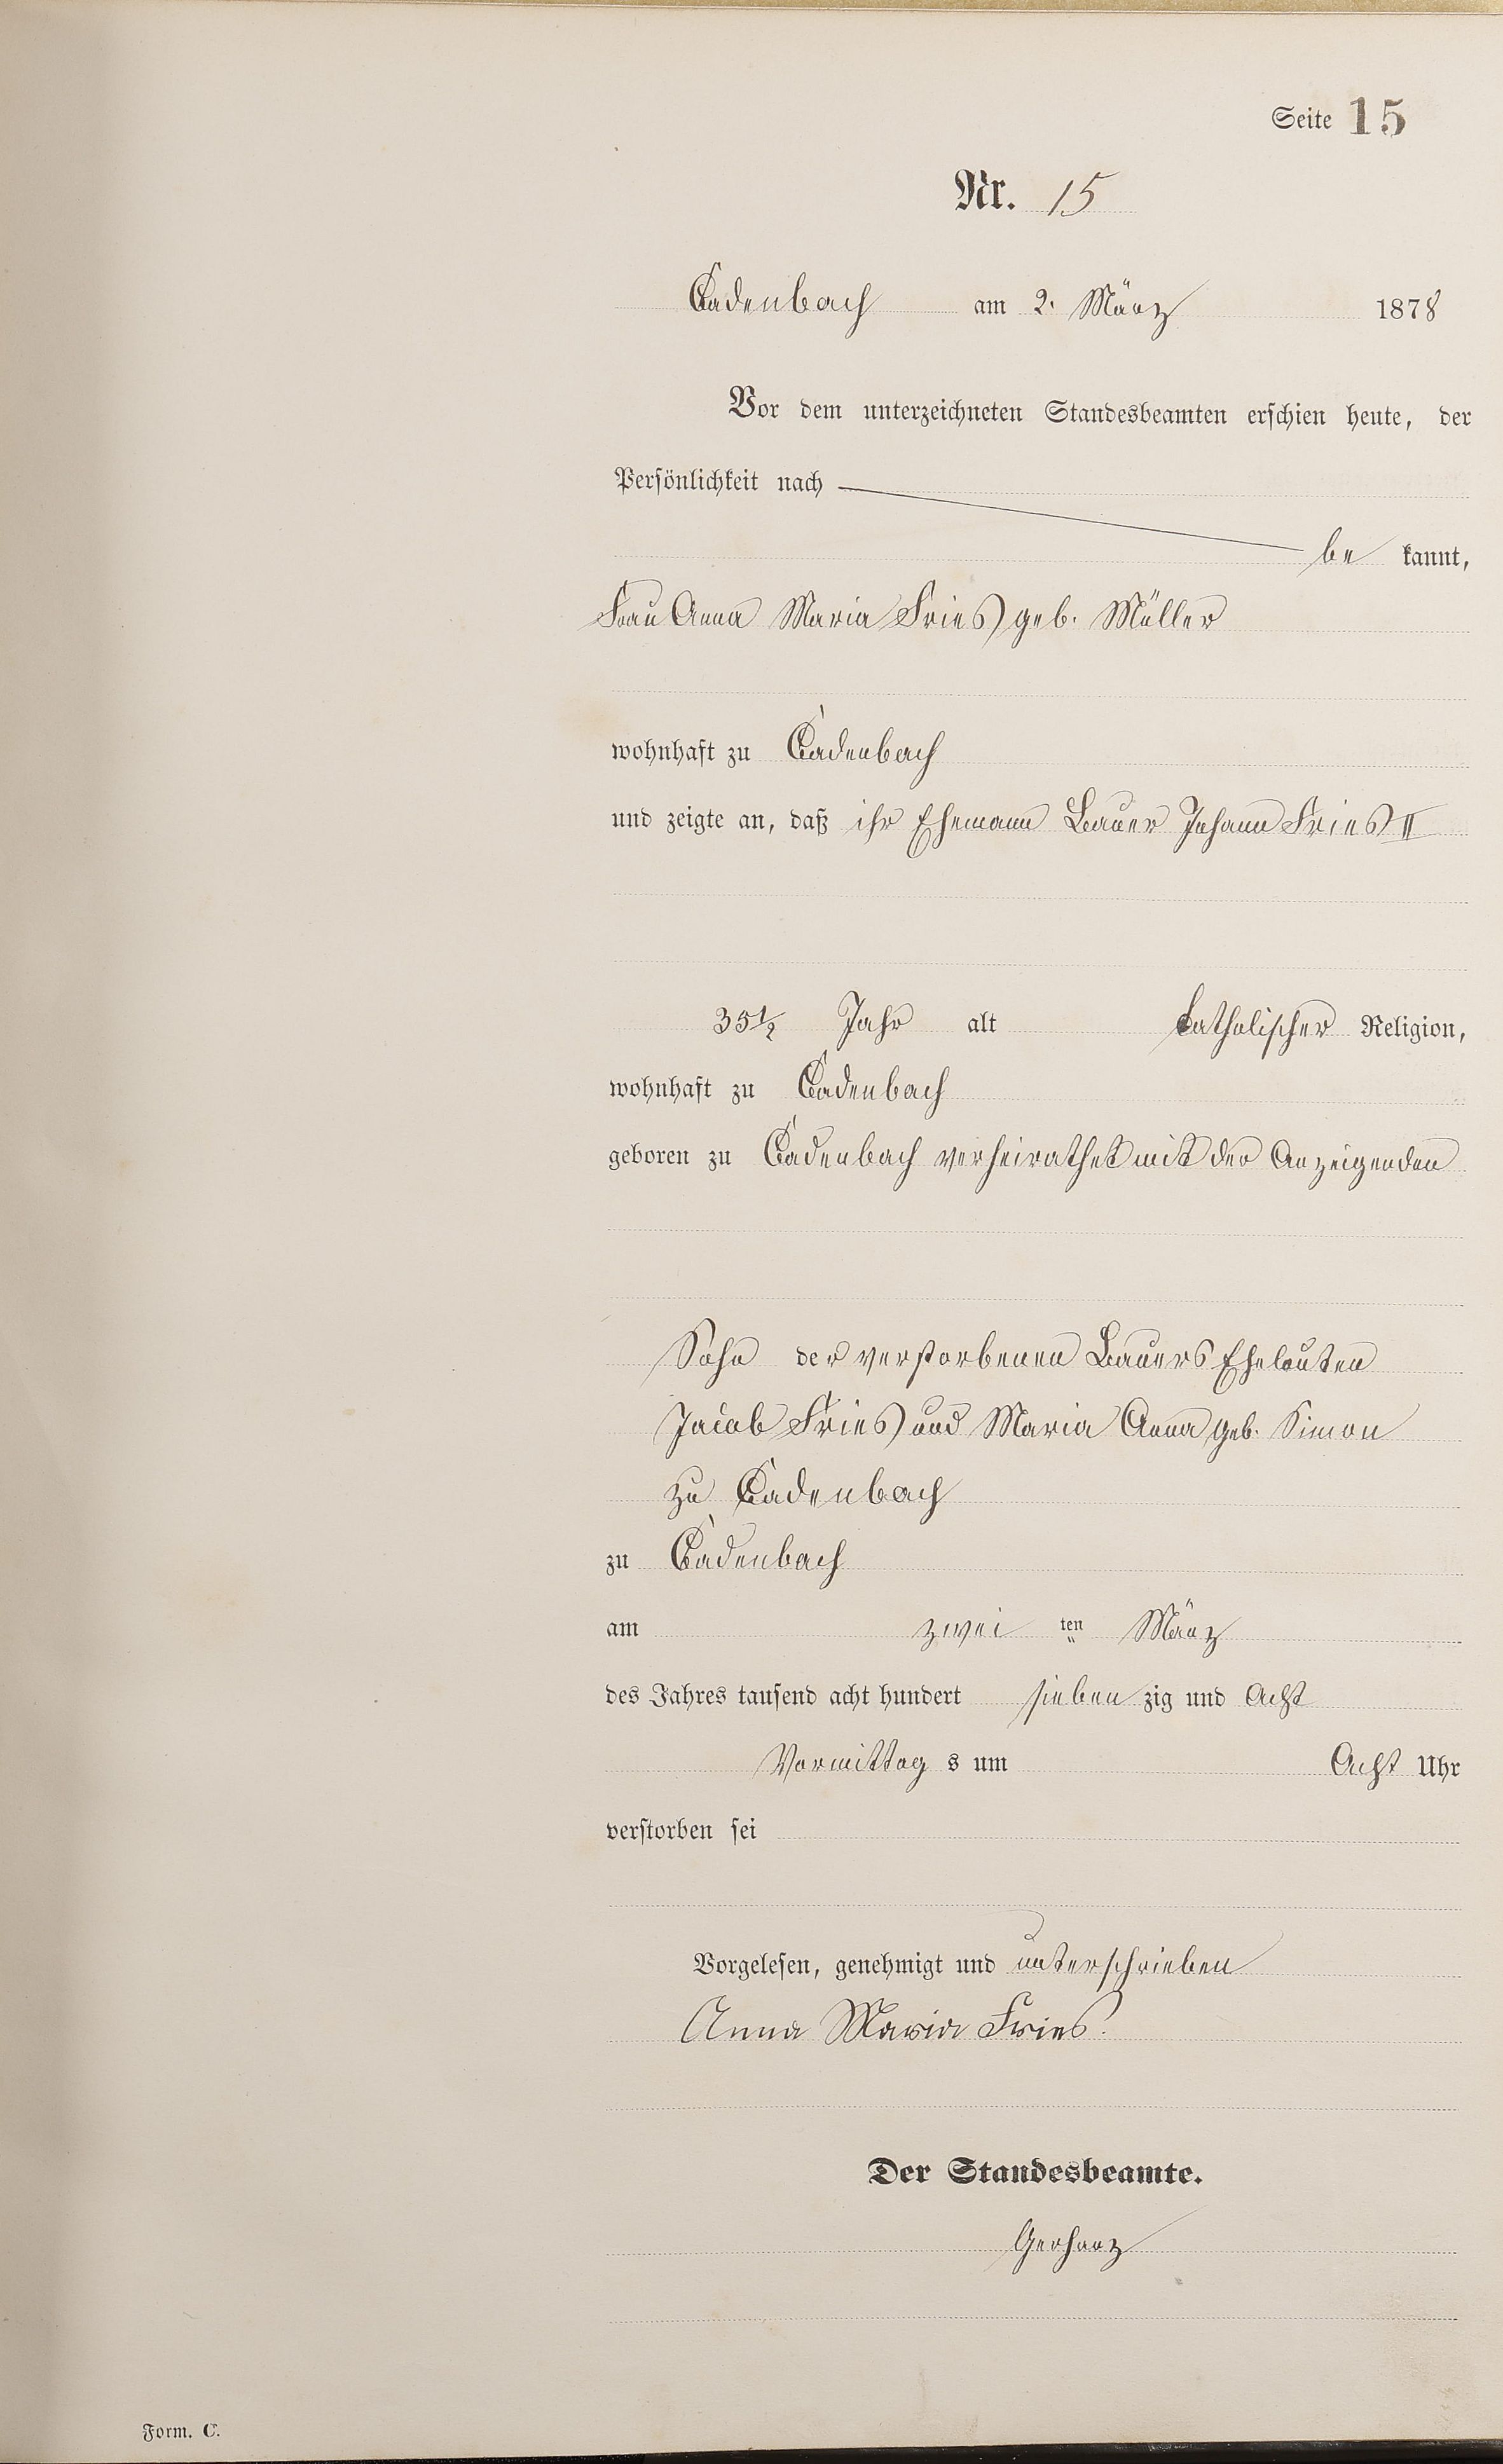 Seite 15
Nr. 15
Cadenbach am 2. März 1878
Vor dem unterzeichneten Standesbeamten erschien heute, der
Persönlichkeit nach
be kannt,
Frau Anna Maria Fries geb. Müller
wohnhaft zu Cadenbach
und zeigte an, daß ihr Ehemann Bauer Johann Fries II
35 1/2 Jahr alt katholischer Religion,
wohnhaft zu Cadenbach
geboren zu Cadenbach verheirathet mit der Anzeigenden
Sohn der verstorbenen Bauers Eheleuten
Jacob Fries und Maria Anna geb. Simon
zu Cadenbach
zu Cadenbach
am zwei ten März
des Jahres tausend acht hundert sieben zig und Acht
Vormittag s um Acht Uhr
verstorben sei
Vorgelesen, genehmigt und unterschrieben
Anna Maria Fries.
Der Standesbeamte.
Gerharz
Form. C.